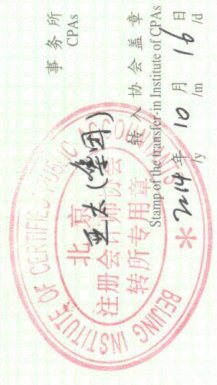 亚太(集团)
事务所
CPAs
转入协会盖章
Stamp of the transfer-in Institute of CPAs
2014年 10月 16日
/y /m /d
BEIJING INSTITUTE OF CERTIFIED PUBLIC
北京
注册会计师协会
转所专用章